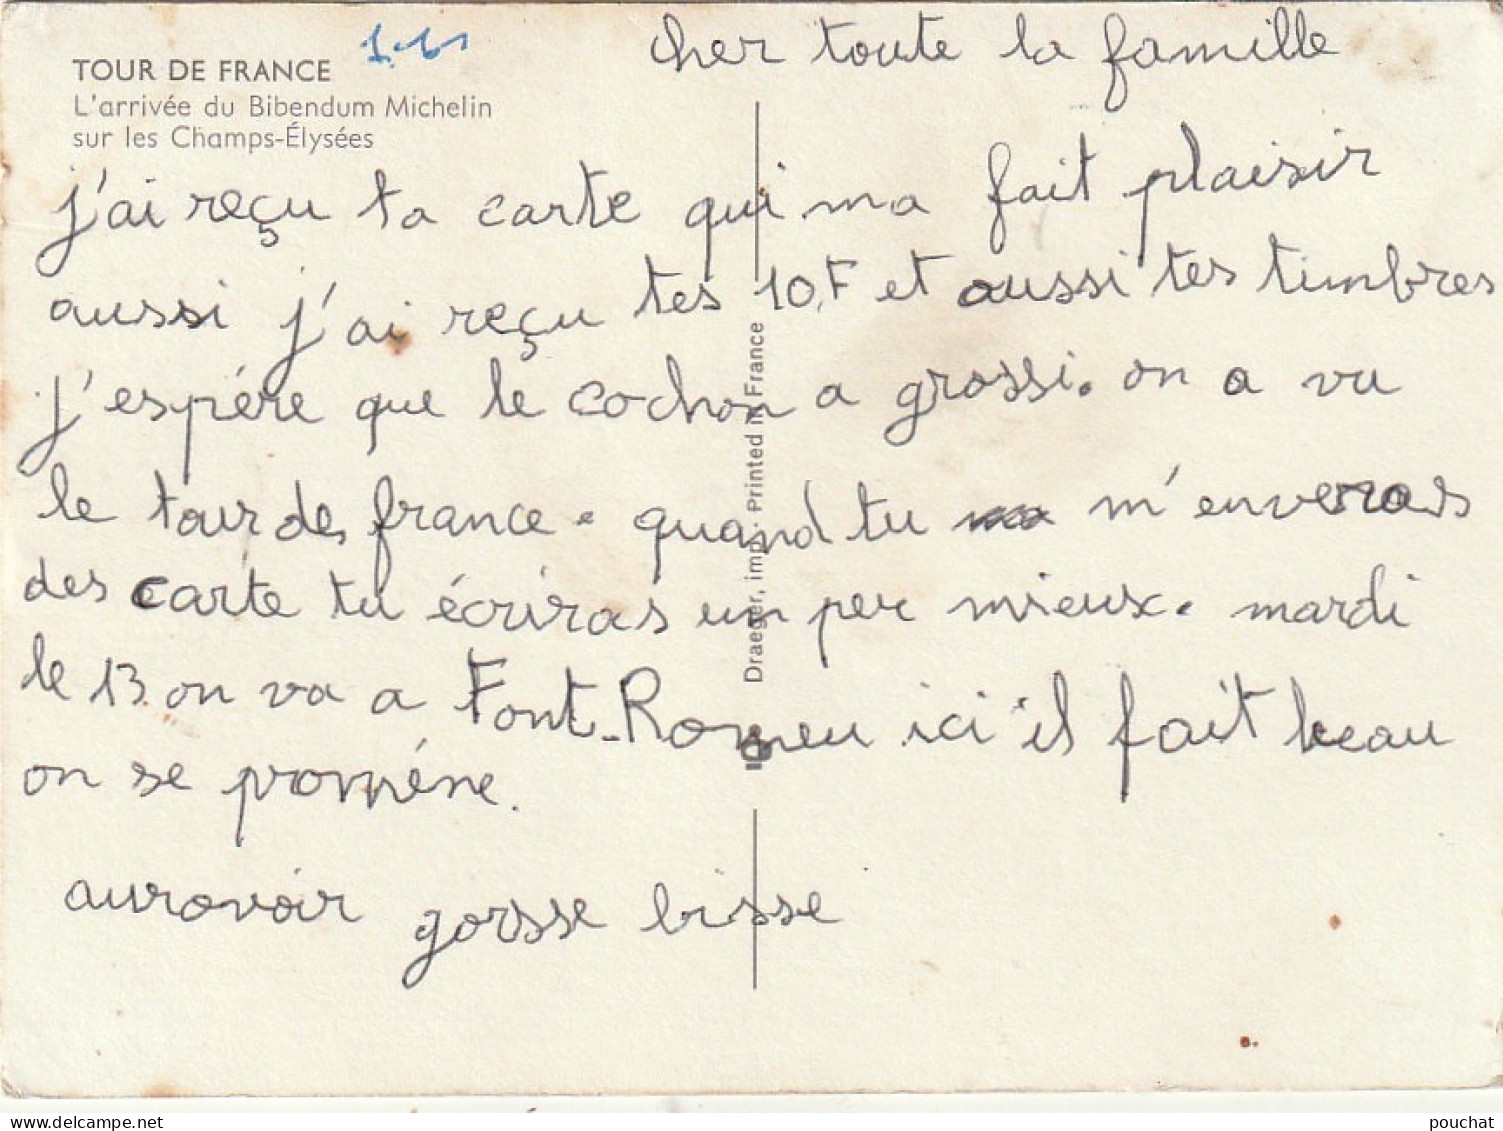 TOUR DE FRANCE
L'arrivée du Bibendum Michelin
sur les Champs-Élysées
cher toute la famille
j'ai reçu ta carte qui ma fait plaisir
aussi j'ai reçu tes 10F et aussi tes timbres
j'espére que le cochon a grossi. on a vu
le tour de france. quand tu m'enveras
des carte tu écriras un per mieux. mardi
le 13 on va a Font-Romeu ici il fait beau
on se proméne.
aurovoir gorsse bisse
Draeger, imp. Printed in France
pouchat